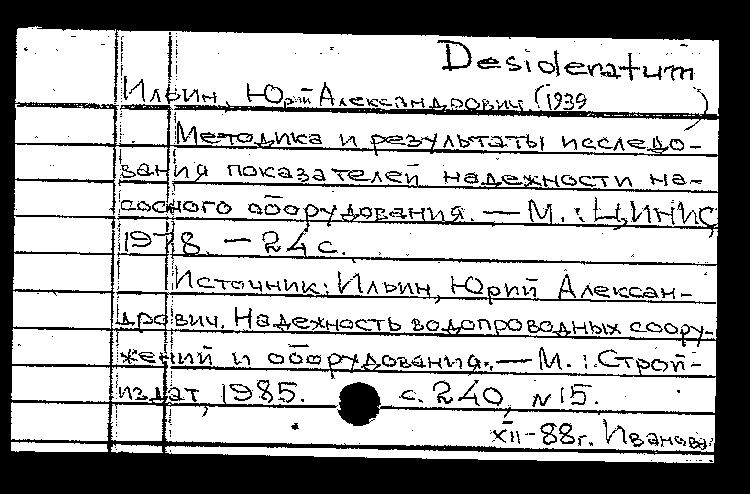 Desideratum
Ильин, Юрий Александрович (1939 )
Методика и результаты исследо-
вания показателей надежности на-
сосного оборудования. — М. : ЦИНИС,
1978. — 24 с.
Источник: Ильин, Юрий Алексан-
дрович. Надежность водопроводных соору-
жений и оборудования. — М. : Строй-
издат, 1985. с. 240, № 15.
XII-88г. Иванова